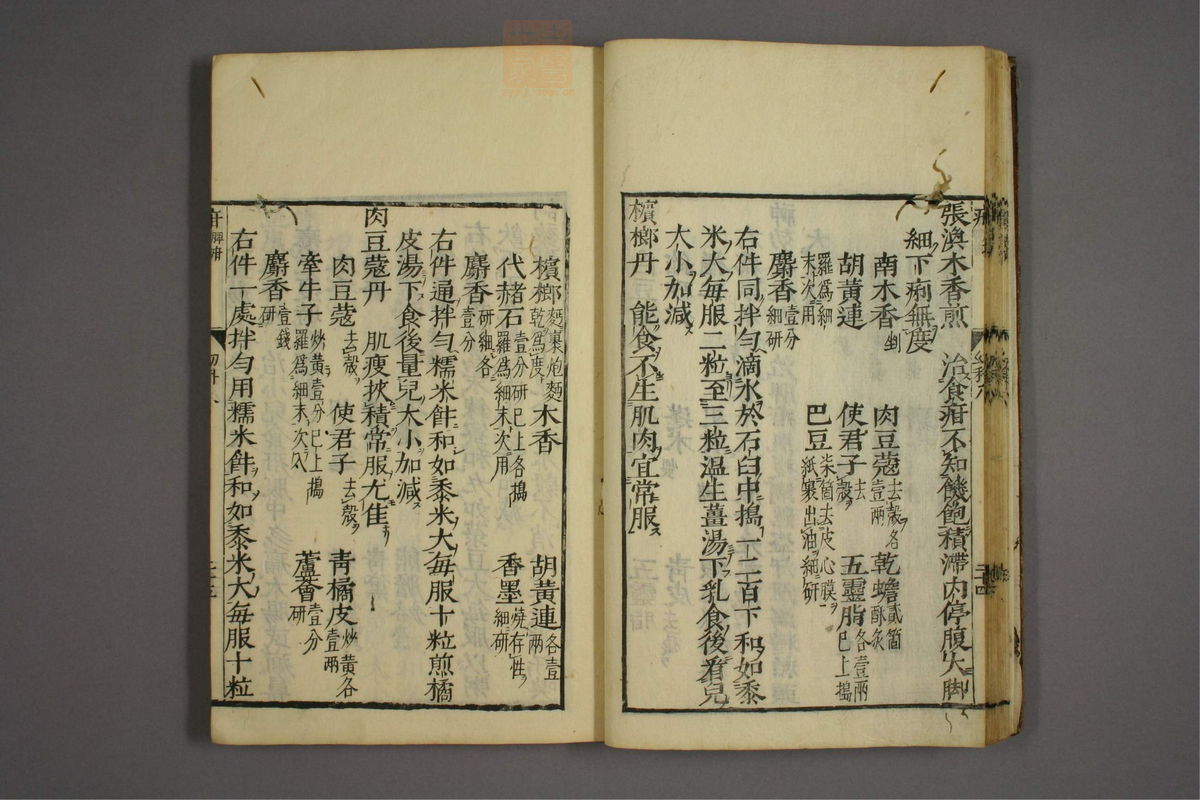 張渙木香煎　治食疳不知饑飽積滯内停腹大脚
細下痢無度
南木香　肉豆蔻去殻各壹兩　乾蟾貳箇酥炙
胡黄連　使君子去殻　五靈脂各壹兩已上搗
羅爲細末次用　巴豆柒箇去皮心膜紙裹出油細研
麝香壹分細研
右件同拌勻滴水於石臼中搗一二百下和如黍
米大每服二粒至三粒温生薑湯下乳食後看兒
大小加減
檳榔丹　能食不生肌肉宜常服
檳榔麵裹炮麵乾爲度　木香　胡黄連各壹兩
代赭石壹分研已上各搗羅爲細末次用　香墨燒存性細研
麝香研細各壹分
右件通拌勻糯米飰和如黍米大每服十粒煎橘
皮湯下食後量兒大小加減
肉豆蔻丹　肌瘦挾積常服尤佳
肉豆蔻去殻　使君子去殻　青橘皮炒黄各壹兩
牽牛子炒黄壹分已上搗羅爲細末次入　蘆薈壹分研
麝香壹錢研
右件一處拌勻用糯米飰和如黍米大每服十粒